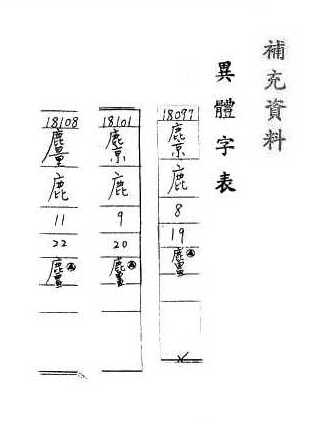 補充資料
異體字表
18097
麖
鹿
8
19
麠
18101
鹿
9
20
麠
18108
鹿
11
22
麠